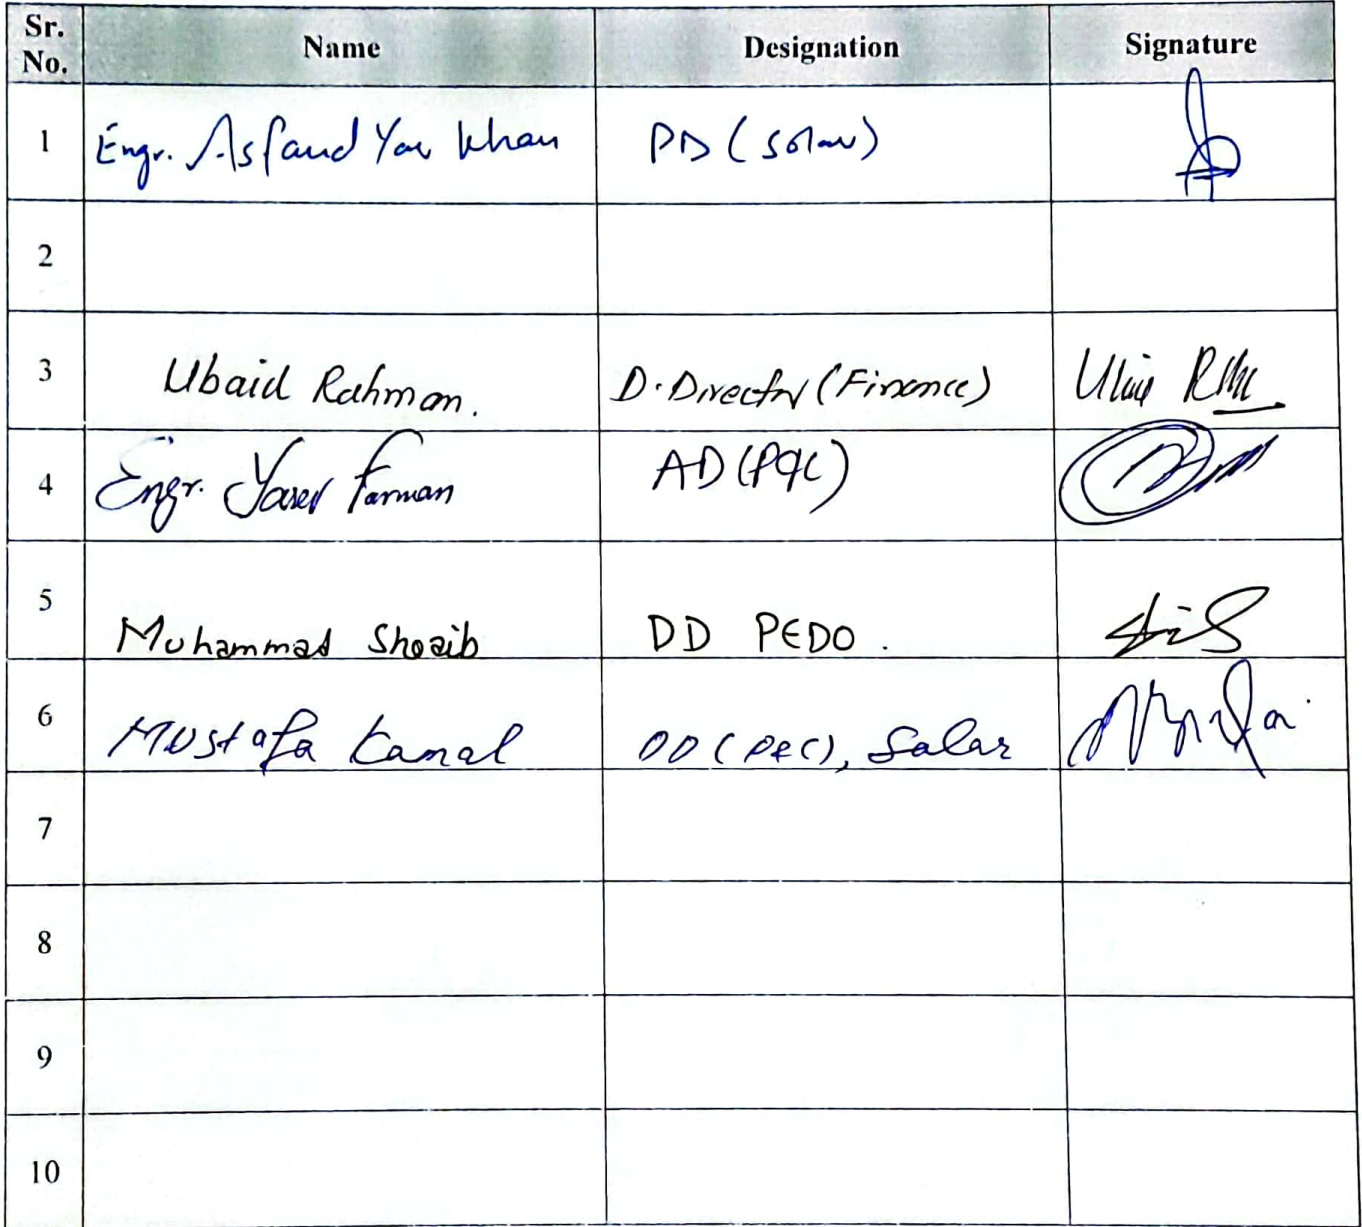 Sr. No. Name Designation Signature
1 Engr. Asfand Yar Khan PD (Solar)
2
3 Ubaid Rahman. D. Director (Finance)
4 Engr. Yaser Farman AD (P&C)
5 Muhammad Shoaib DD PEDO.
6 Mustafa Kamal DD (P&C), Solar
7
8
9
10